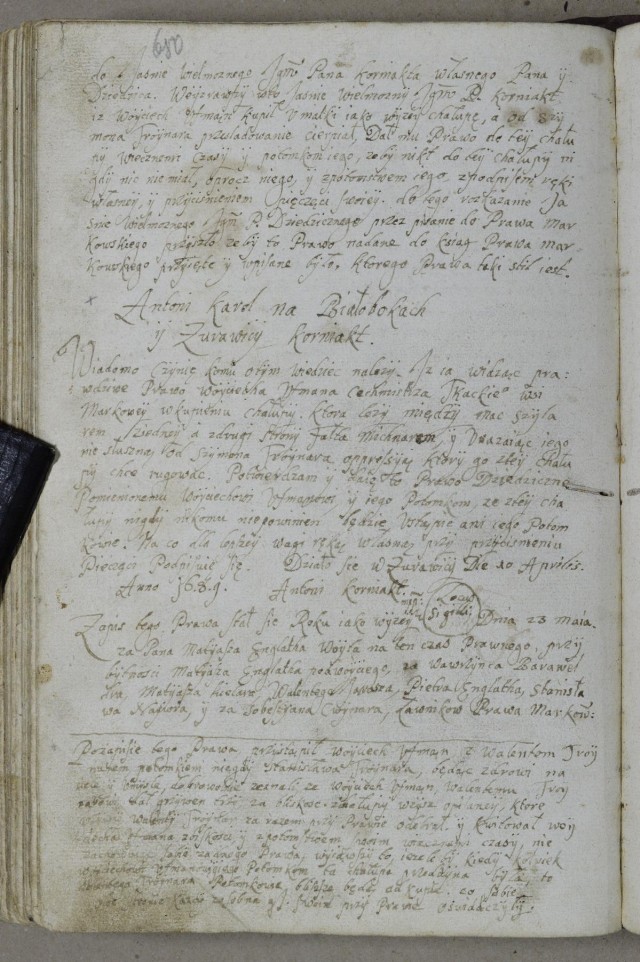 680
do Jasnie Wielmoznego Jgm Pana Korniakta własnego Pana ij
Dziedzica. Wejzrawszy w to Jasnie Wielmozny Jgm P. Korniakt
iz Woyciech Utman kupił u matki iako wyzey chałupę, a od Szy
mona Troynara przesladowanie cierpiał, Dał mu Prawo do tey chału
py wiecznemi czasy y potomkom iego, zeby nikt do tey chałupy ni
gdy nic niemiał, oprocz niego, y zpotomstwem iego, zpodpisem ręki
własney, y przycisnieniem pieczęci swoiey. do tego rozkazanie Ja
snie Wielmoznego Jgm P. Dziedzicznego przez pisanie do Prawa Mar
kowskiego przyszło zeby to Prawo nadane do Xiąg Prawa Mar-
kowskiego przyięte y wpisane było, ktorego Prawa taki stil iest.
Antoni Karol na Białobokach
ij Zurawicy Korniakt.
Wiadomo czynię komu otym wiedziec nalezy. Iz ia widząc pra:
wdziwe Prawo Woyciecha Utmana Cechmistrza Tkackie° wsi
Markowey wkupieniu chałupy. ktora lezy między Mac Szyla
rem zjedney a zdrugi strony Jakła Michnarem, y Uwazaiąc iego
nie słuszną od Szymona Troynara oppressyią, ktory go ztey chału
py chce rugowac. Potwierdzam y daię to Prawo Dziedziczne
Pomienionemu Woyciechowi Utmanowi y iego Potomkom, ze ztey cha
łupy nigdy nikomu niepowinien będzie Ustąpic ani iego Potom
kowie. Na co dla lepszey wagi ręką własną przy przycisnieniu
Pieczęci Podpisuię się. Działo się w Zurawicy Die 10 Aprilis.
Anno 1689. Antoni Korniakt. mp Locus Sigilli
Zapis tego Prawa stał się Roku iako wyzey Dnia 23 Maia.
za Pana Matyasza Englatha Woyta na ten czas Prawnego, przy
bytnosci Matyasza Englatha podwoyciego, za Wawrzynca
Matyasza Kielara Walentego Pietra Englatha, Stanisła
wa Nagiora, y za Sobestyana Troynara, Ławnikow Prawa Markow:
tego Prawa przystąpił Woyciech Utman z Walentem Troy
narem potomkiem niegdy Stanisława Troynara, będąc zdrowi na
ciele y umysle, dobrowolnie zeznali, ze Woyciech Utman, Walentemu Troy
narowi dał grzywen trzy za bliskosc chałupy wyzey opisaney, ktore
Walenty Troynar za razem przy Prawie odebrał y kwitował Woy
ciecha Utmana y zpotomstwem swoim wiecznymi czasy, nie
zadnego Prawa, wyiąwszy to, iezeli by kiedy kolwiek
Utmanowi Potomkom ta chałupa przedayna była, to
Troynara Potomkowie blizsi będą do kupna. co sobie
przy Prawie oswiadczyły.